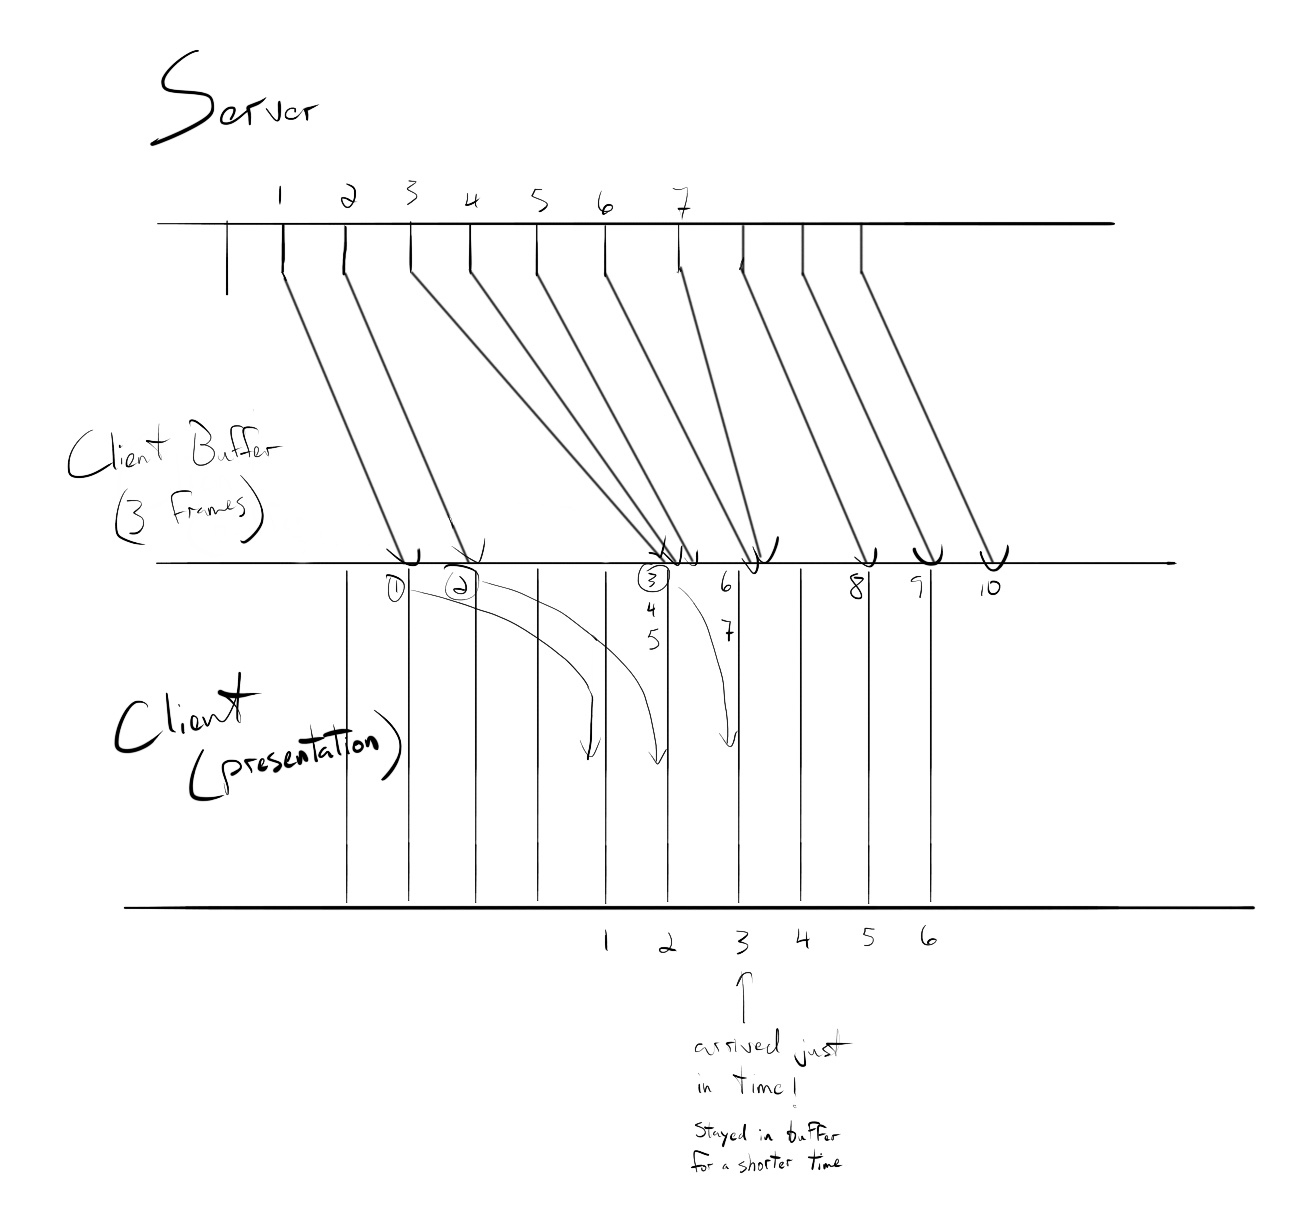 Server
1 2 3 4 5 6 7
Client Buffer
(3 Frames)
1 2 3 6 8 9 10
4
5 7
Client
(presentation)
1 2 3 4 5 6
arrived just
in time!
Stayed in buffer
for a shorter time